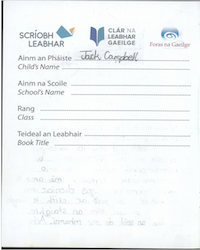 SCRÍOBH LEABHAR
CLÁR NA LEABHAR GAEILGE
Foras na Gaeilge
Ainm an Pháiste Jack Campbell
Child's Name
Ainm na Scoile
School's Name
Rang
Class
Teideal an Leabhair
Book Title